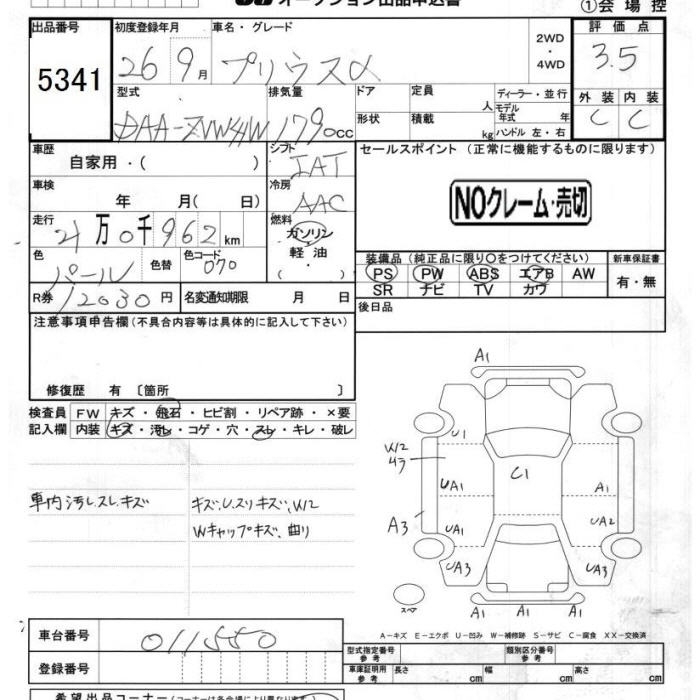 オークション出品申込書
①会場控
出品番号
5341
初度登録年月
26 9月
車名・グレード
プリウスα
2WD
・
4WD
評価点
3.5
外装 内装
C C
型式
DAA-ZVW41W
排気量
1790cc
ドア
形状
定員
人
積載
kg
ディーラー・並行
モデル年式 年
ハンドル 左・右
車歴
自家用・( )
シフト
IAT
セールスポイント (正常に機能するものに限ります)
NOクレーム・売切
車検
年 月( 日)
冷房
AAC
走行
万0千962km
燃料
ガソリン
軽油
( )
色
パール
色替
色コード
070
装備品 (純正品に限り○をつけてください)
PS PW ABS エアB AW
SR ナビ TV カワ
新車保証書
有・無
R券
12030円
名変通知期限 月 日
後日品
注意事項申告欄(不具合内容等は具体的に記入して下さい)
修復歴 有 〔箇所 〕
検査員
記入欄
FW キズ・飛石・ヒビ割・リペア跡・×要
内装 キズ・汚レ・コゲ・穴・スレ・キレ・破レ
車内汚レスレキズ
キズ、U、スリキズ、W2
Wキャップキズ、曲り
A1
U1
W2
キラ
UA1
C1
A1
A3
UA1
UA2
UA3
UA3
スペア
A1 A1 A1
A-キズ E-エクボ U-凹み W-補修跡 S-サビ C-腐食 XX-交換済
車台番号
011550
登録番号
型式指定番号
参考
類別区分番号
参考
車庫証明用
参考
長さ cm
幅 cm
高さ cm
希望出品コーナー